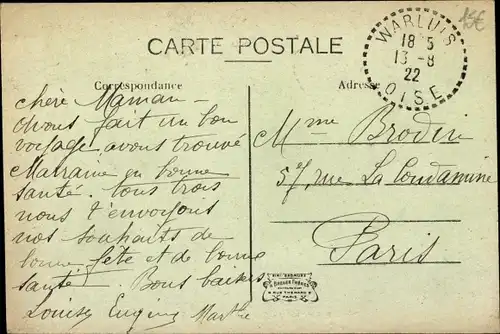 15€
WARLUIS
18 5
13 - 8
22
OISE
CARTE POSTALE
Correspondance
Adresse
chère Maman -
Avons fait un bon
voyage avons trouvé
Marraine en bonne
santé. tous trois
nous t'envoyons
nos souhaits de
bonne fête et de bonne
santé. Bons baisers
Louise Eugène Marthe
Mme Brodin
57, rue La Condamine
Paris
BREGER FRÈRES
9 RUE THENARD 9
PARIS